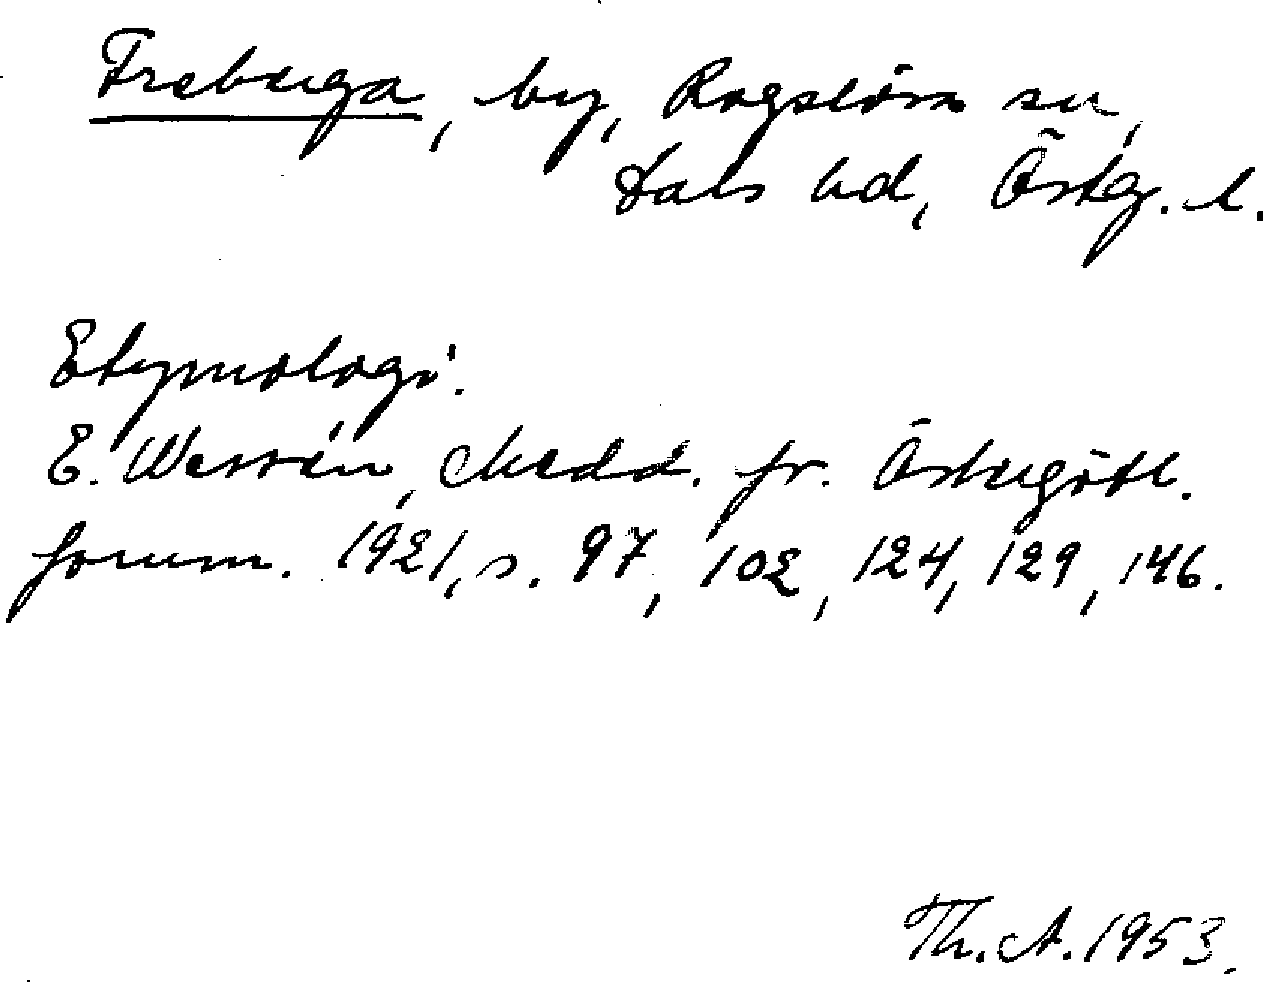 Freberga, by, Rogslösa sn,
Dals hd, Östg. l.
Etymologi.
E. Wessén, Medd. fr. Östergötl.
fornm. 1921, s. 97, 102, 124, 129, 146.
Th. A. 1953.